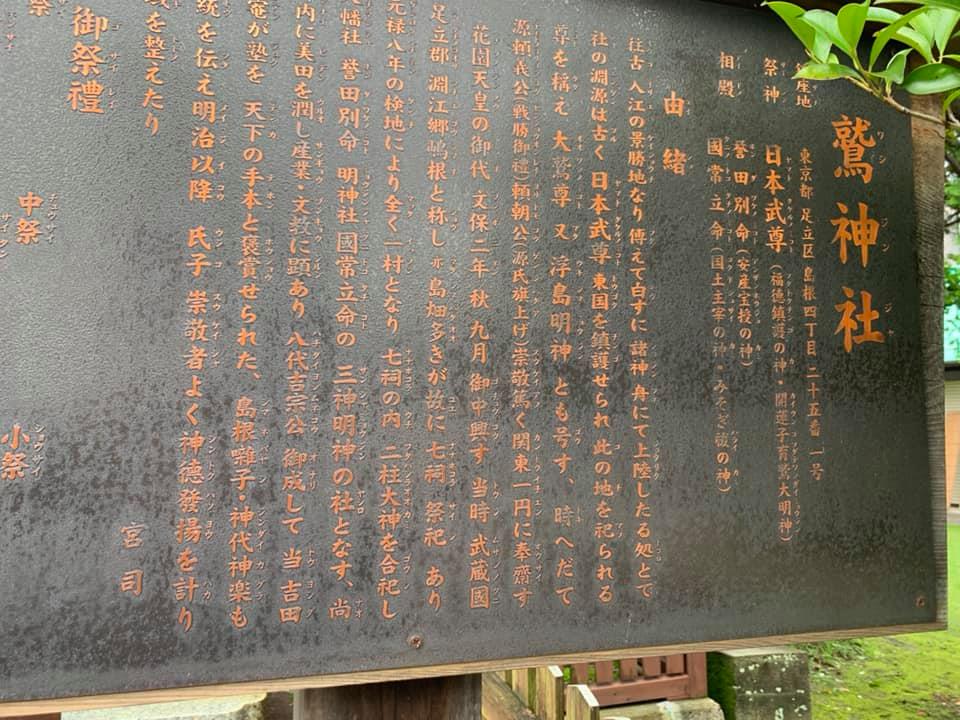 鷲神社
鎮座地 東京都 足立区 島根 四丁目 二十五番 一号
祭神 日本武尊(福徳鎮護の神・開運子育鷲大明神)
相殿 誉田別命(安産宝授の神)
國常立命(国土主宰の神・みそぎ祓の神)
由緒
往古 入江の景勝地なり 傳えて白すに 諸神 舟にて上陸したる処とて
社の淵源は古く 日本武尊 東国を鎮護せられ 此の地を祀られる
尊を称え 大鷲尊 又 浮島明神 とも号す、 時へだて
源頼義公(戦勝御禮)頼朝公(源氏旗上げ)崇敬篤く関東一円に奉齋す
花園天皇の御代 文保二年 秋 九月 御中興す 当時 武蔵國
足立郡 淵江郷嶋根と称し 亦 島畑多きが故に 七祠 祭祀 あり
元禄八年の検地により全く一村となり 七祠の内 二柱大神を合祀し
幡社 誉田別命 明神社 國常立命の 三神明神の社となす、尚
内に美田を潤し産業・文教に顕あり 八代吉宗公 御成して 当 吉田
庵が塾を 天下の手本と褒賞せられた、 島根囃子・神代神楽も
統を伝え 明治以降 氏子 崇敬者よく神徳發揚を計り
を整えたり
宮司
御祭禮
中祭
小祭
祭